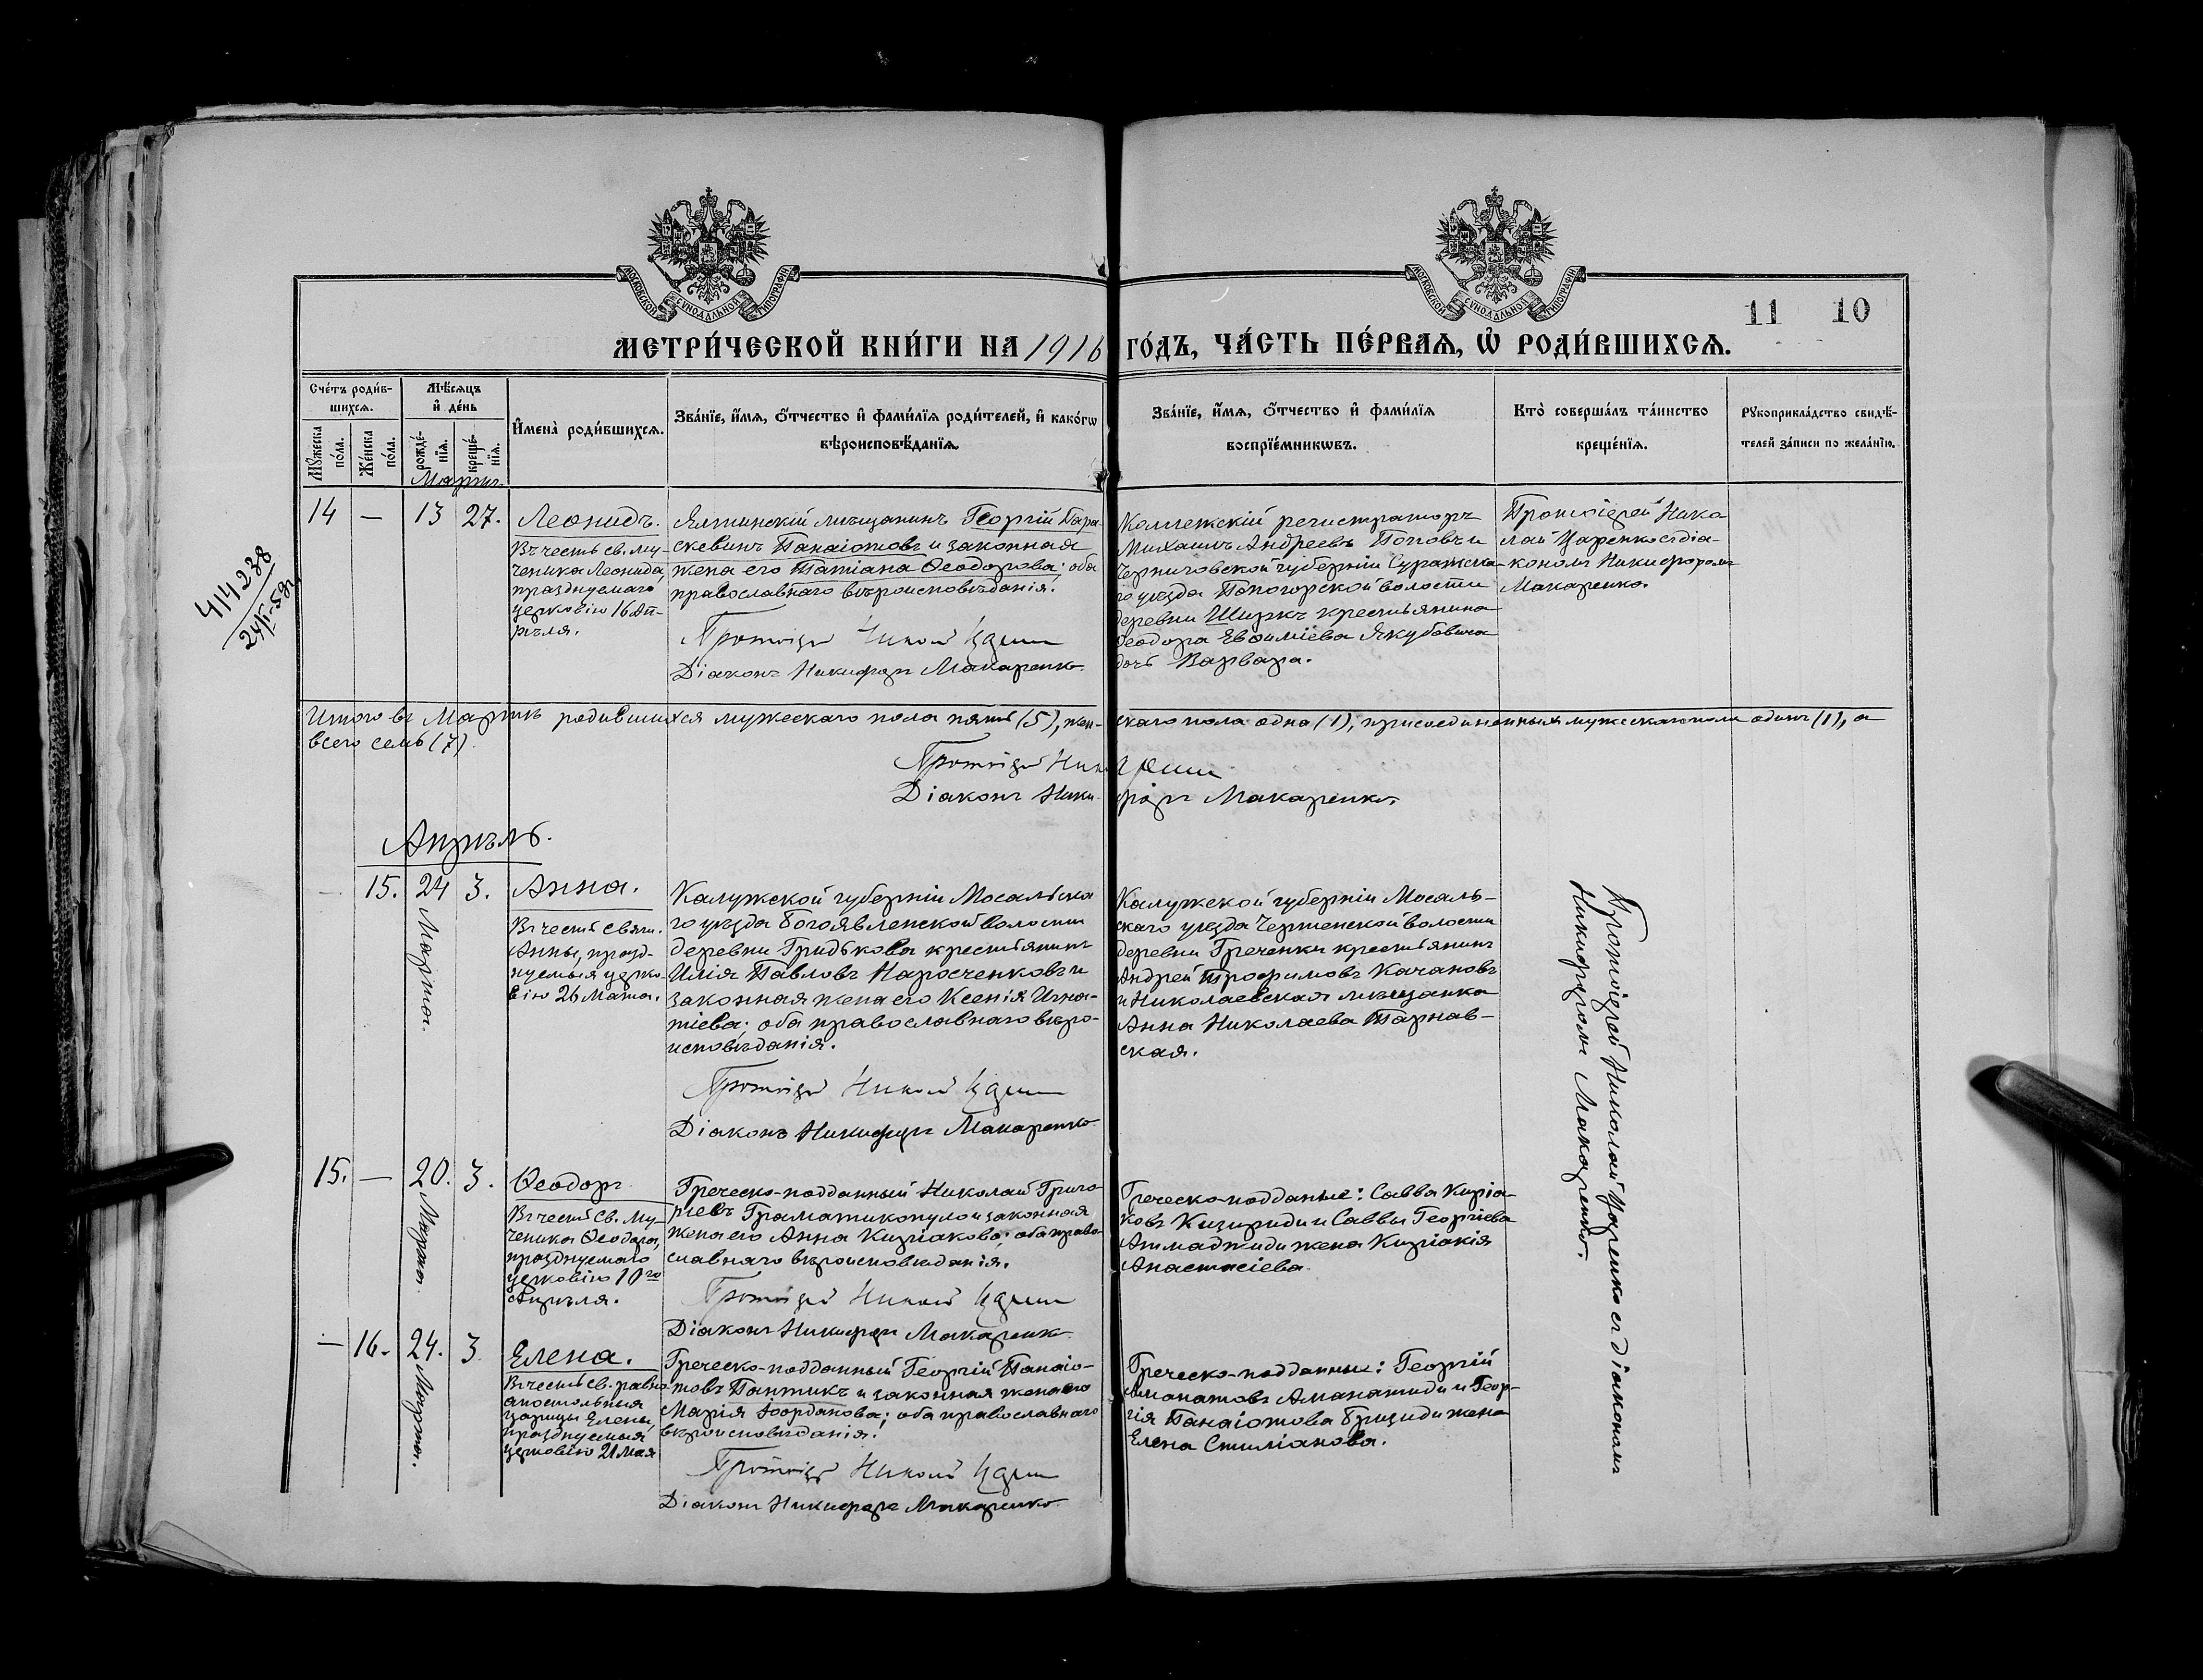 МОСКОВСКОЙ СѴНОДАЛЬНОЙ ТИПОГРАФІИ
МОСКОВСКОЙ СѴНОДАЛЬНОЙ ТИПОГРАФІИ
11 10
МЕТРИ́ЧЕСКОЙ КНИ́ГИ НА 1916 ГО́ДЪ, ЧА́СТЬ ПЕ́РВАѦ, Ѡ҆ РОДИ́ВШИХСѦ.
Сче́тъ роди́в-
шихсѧ.
Мꙋ́жеска по́ла.
Же́нска по́ла.
Мѣ́сѧцъ
и҆ де́нь
рожде́-
нїѧ.
креще́-
нїѧ.
И҆мена̀ роди́вшихсѧ.
Зва́нїе, и҆́мѧ, ѻ҆́тчество и҆ фами́лїѧ роди́телей, и҆ како́гѡ
вѣроисповѣ́данїѧ.
Зва́нїе, и҆́мѧ, ѻ҆́тчество и҆ фами́лїѧ
воспрїе́мникѡвъ.
Кто̀ соверша́лъ та́инство
креще́нїѧ.
Рꙋкоприкла́дство свидѣ́-
телей за́писи по жела́нїю.
Мартъ
14 — 13 27.
Леонидъ.
Въ честь св. му-
ченика Леонида,
празднуемаго
церковію 16 Ап-
рѣля.
Ялтинскій мѣщанинъ Георгій Пара-
скевинъ Панаіотовъ и законная
жена его Татіана Ѳеодорова; оба
православнаго вѣроисповѣданія.
Протоіерей Николай
Діаконъ Никифоръ Макаренко
Коллежскій регистраторъ
Михаилъ Андреевъ Поповъ и
Черниговской губерніи Суражска-
го уѣзда Попогорской волости
деревни Ширкъ крестьянина
Ѳеодора Евѳиміева Якубовича
дочь Варвара.
Протоіерей Нико
лай Царенко съ діа-
кономъ Никифоромъ
Макаренко.
414238
24/II-59г.
Итого въ Мартѣ родившихся мужескаго пола пять (5), жен-скаго пола одна (1), присоединенныхъ мужескаго пола одинъ (1), а
всего семь (7)
Протоіерей
Діаконъ Никифоръ Макаренко.
Апрѣль.
15. 24 3.
Марта.
Анна.
Въ честь свят.
Анны, празд-
нуемыя церко-
вію 26 Марта.
Калужской губерніи Мосальска
го уѣзда Богоявленской волости
деревни Гридькова крестьянинъ
Илія Павловъ Наросченковъ и
законная жена его Ксенія Игна-
тіева; оба православнаго вѣро-
исповѣданія.
Протоіерей Николай
Діаконъ Никифоръ Макаренко
Калужской губерніи Мосаль-
скаго уѣзда Чертенской волости
деревни Греченки крестьянинъ
Андрей Трофимовъ Качановъ
и Николаевская мѣщанка
Анна Николаева Тарнав-
ская.
Протоіерей Николай Царенко съ діакономъ
Никифоромъ Макаренко.
15. — 20. 3.
Марта.
Ѳеодоръ
Въ честь св. му-
ченика Ѳеодора,
празднуемаго
церковію 10го
Апрѣля.
Греческо-подданный Николай Григо-
ріевъ Граматикопуло и законная
жена его Анна Киріакова; оба право-
славнаго вѣроисповѣданія.
Протоіерей Николай
Діаконъ Никифоръ Макаренко
Греческо-подданные: Савва Киріа-
ковъ и Саввы Георгіева
Атмаджиди жена Киріакія
Анастасіева.
— 16. 24. 3
Марта.
Елена.
Въ честь св. равно
апостольныя
царицы Елены,
празднуемыя
церковію 21 Мая
Греческо-подданный Георгій Панаіо-
товъ Пантикъ и законная жена его
Марія Іорданова; оба православнаго
вѣроисповѣданія.
Протоіерей Николай
Діаконъ Никифоръ Макаренко
Греческо-подданные: Георгій
Аманатовъ Аманатиди и Геор-
гія Панаіотова жена
Елена Стиліанова.